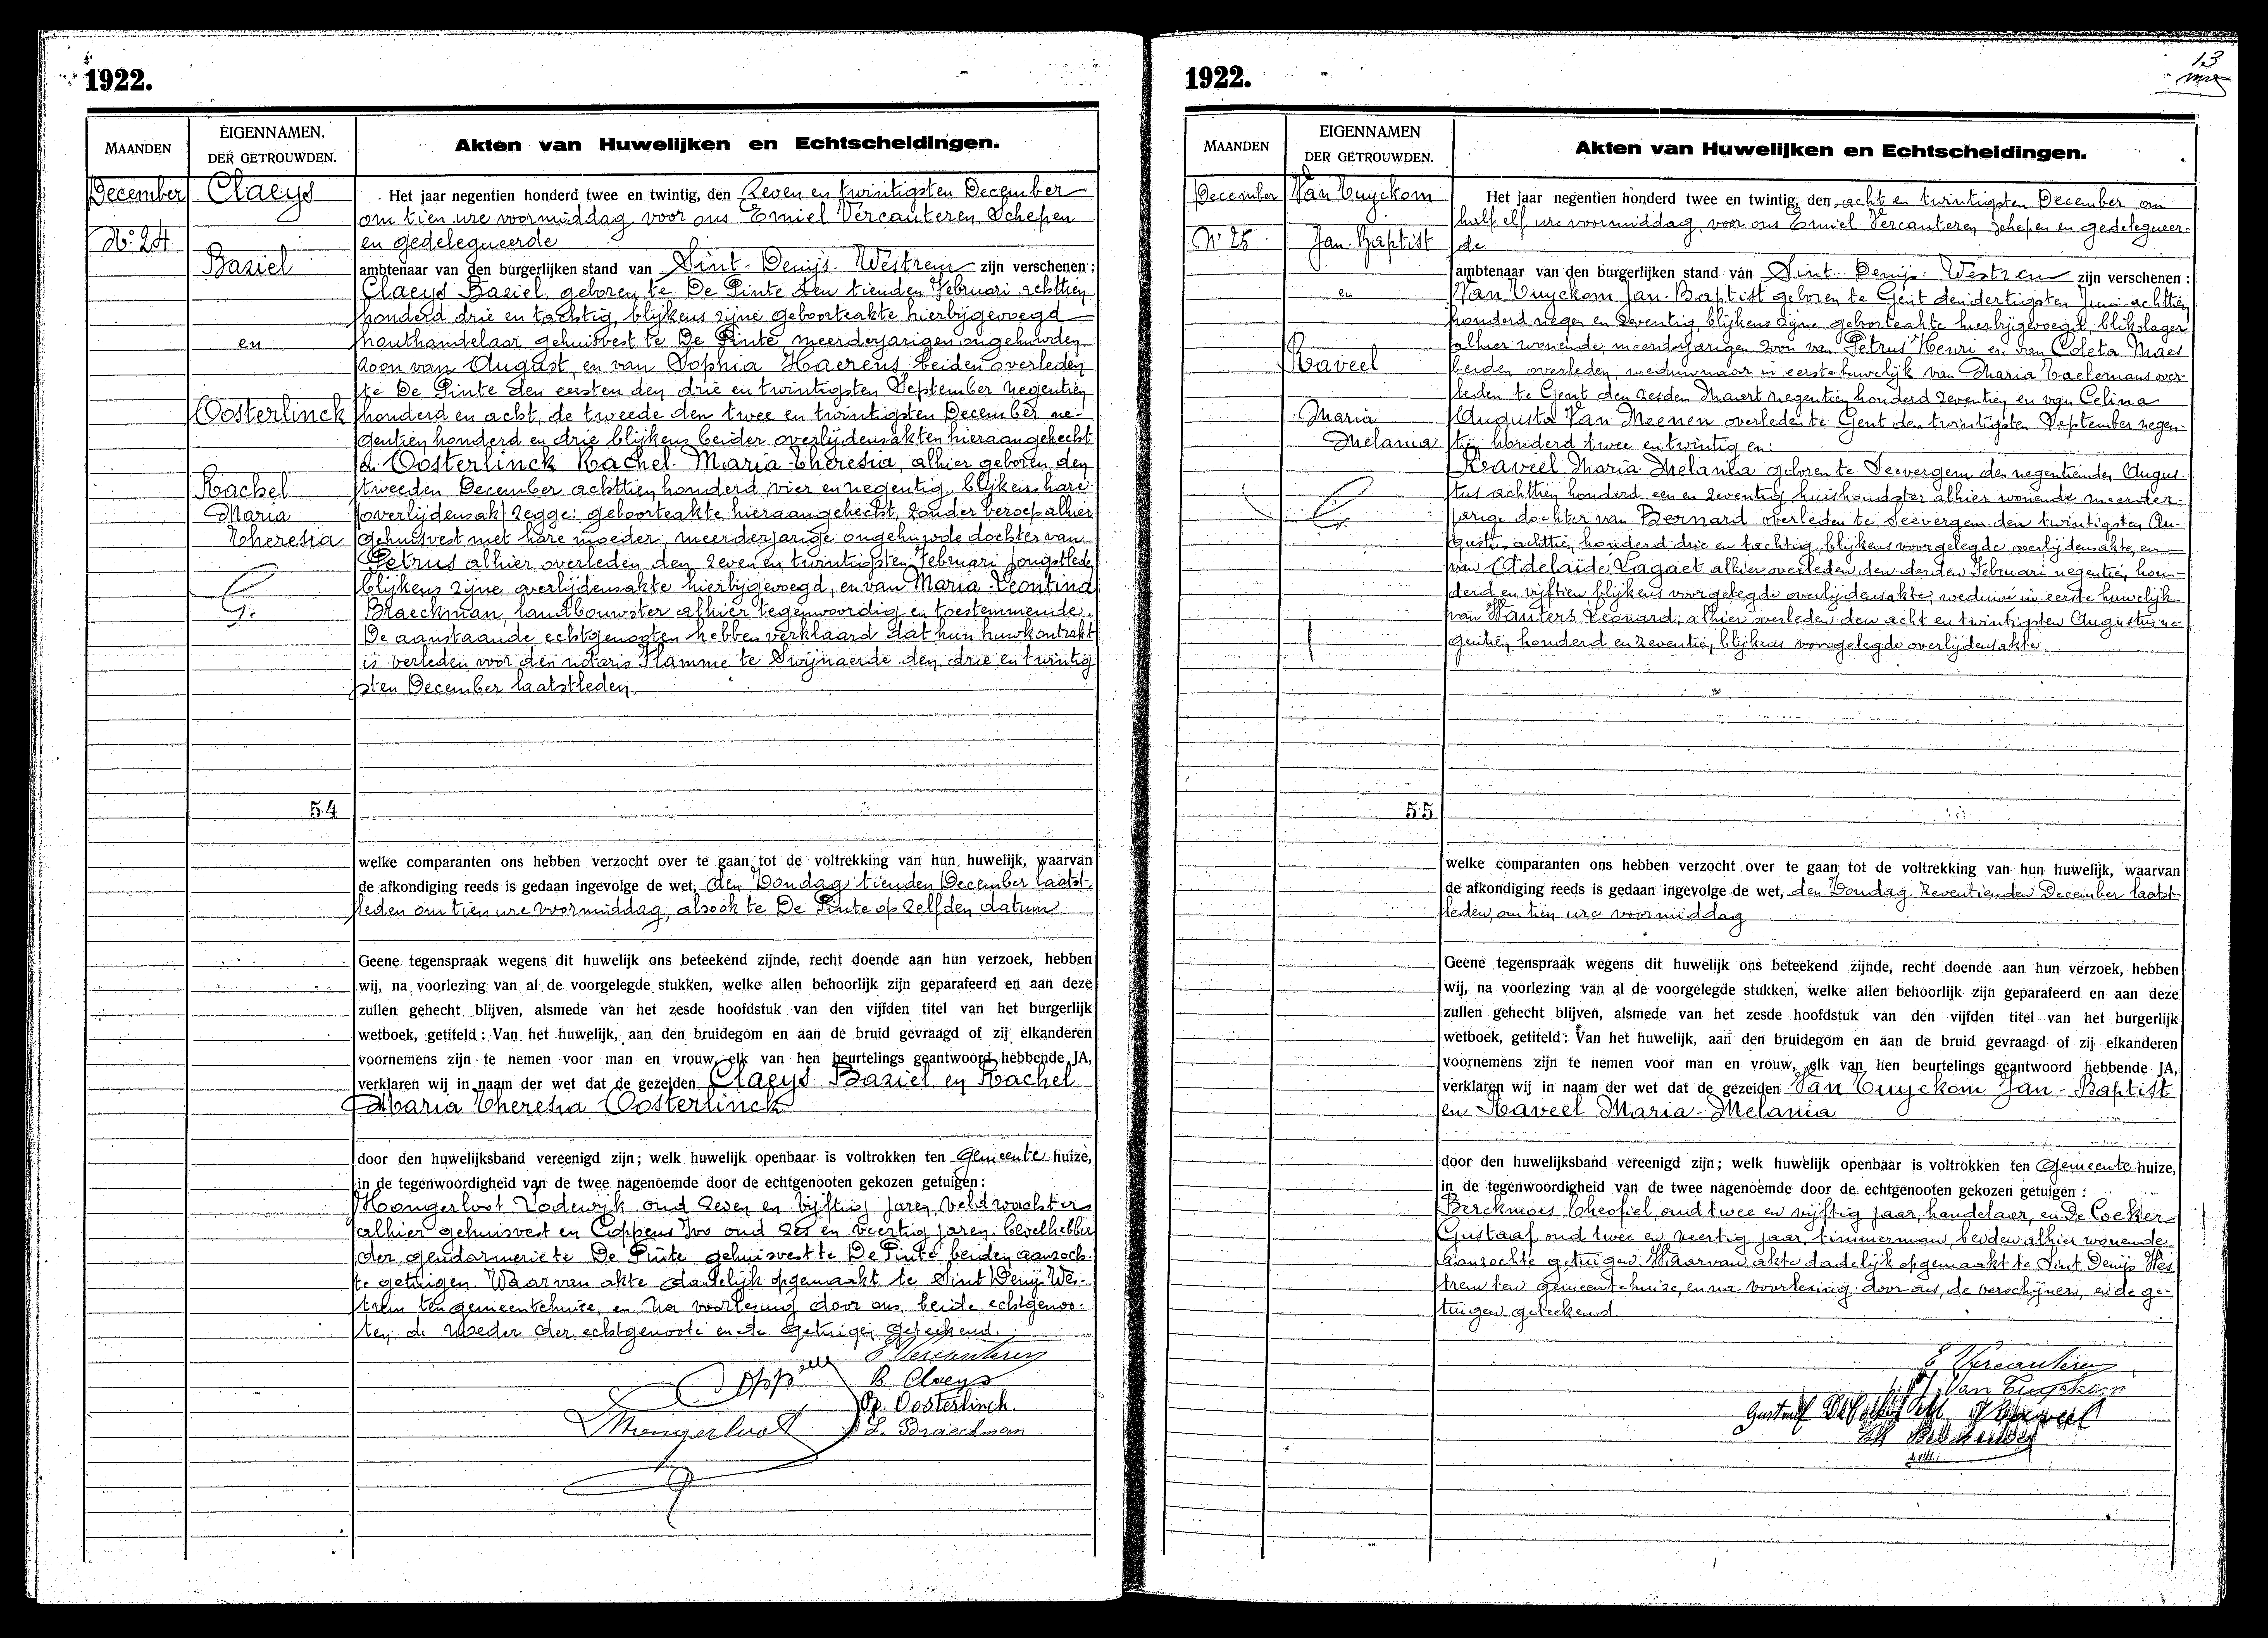 1922.
MAANDEN
EIGENNAMEN.
DER GETROUWDEN.
Akten van Huwelijken en Echtscheidingen.
December
Nº 24
Claeys
Baziel
en
Oosterlinck
Rachel
Maria
Theresia
G.
54
Het jaar negentien honderd twee en twintig, den Zeven en twintigsten December
om tien ure voormiddag voor ons Emiel Vercauteren, Schepen
en gedelegueerde
ambtenaar van den burgerlijken stand van Sint-Denijs-Westrem zijn verschenen:
Claeys Baziel, geboren te De Pinte den tienden Februari achttien
honderd drie en tachtig, blijkens zijne geboorteakte hierbijgevoegd
houthandelaar gehuisvest te De Pinte, meerderjarigen ongehuwden
zoon van August, en van Sophia Haerens beiden overleden
te De Pinte den eersten den drie en twintigsten September negentien
honderd en acht, de tweede den twee en twintigsten December ne-
gentien honderd en drie blijkens beider overlijdensakten hieraangehecht
en Oosterlinck Rachel Maria Theresia, alhier geboren den
tweeden December achttien honderd vier en negentig blijkens hare
overlijdensak/ zegge: geboorteakte hieraangehecht, zonder beroep alhier
gehuisvest met hare moeder, meerderjarige ongehuwde dochter van
Petrus alhier overleden den zeven en twintigsten Februari jongstleden
blijkens zijne overlijdensakte hierbijgevoegd, en van Maria Leontina
Braeckman, landbouwster alhier tegenwoordig en toestemmende.
De aanstaande echtgenooten hebben verklaard dat hun huwkontrakt
is verleden voor den notaris Flamme te Swijnaerde den drie en twintig
sten December laatstleden.
welke comparanten ons hebben verzocht over te gaan tot de voltrekking van hun huwelijk, waarvan
de afkondiging reeds is gedaan ingevolge de wet, den Zondag tienden December laatst-
leden om tien ure voormiddag, alsook te De Pinte op zelfden datum
Geene tegenspraak wegens dit huwelijk ons beteekend zijnde, recht doende aan hun verzoek, hebben
wij, na voorlezing van al de voorgelegde stukken, welke allen behoorlijk zijn geparafeerd en aan deze
zullen gehecht blijven, alsmede van het zesde hoofdstuk van den vijfden titel van het burgerlijk
wetboek, getiteld: Van het huwelijk, aan den bruidegom en aan de bruid gevraagd of zij elkanderen
voornemens zijn te nemen voor man en vrouw, elk van hen beurtelings geantwoord hebbende JA,
verklaren wij in naam der wet dat de gezeiden Claeys Baziel en Rachel
Maria Theresia Oosterlinck
door den huwelijksband vereenigd zijn; welk huwelijk openbaar is voltrokken ten Gemeente huize,
in de tegenwoordigheid van de twee nagenoemde door de echtgenooten gekozen getuigen:
Hongerloot Lodewijk oud zeven en vijftig jaren, veldwachter
alhier gehuisvest en Coppens Ivo oud zes en veertig jaren, bevelhebber
der gendarmerie te De Pinte gehuisvest te De Pinte beiden aanzoch-
te getuigen. Waarvan akte dadelijk opgemaakt te Sint Denijs Wes-
trem ten gemeentehuize, en na voorlezing door ons, beide echtgenoo-
ten, de moeder der echtgenoote en de getuigen geteekend.
E Vercauteren
B. Claeys
R. Oosterlinck
L. Braeckman
1922.
13
MAANDEN
EIGENNAMEN
DER GETROUWDEN.
Akten van Huwelijken en Echtscheidingen.
December
Nº 25
Van Tuyckom
Jan-Baptist
en
Raveel
Maria
Melania
55
Het jaar negentien honderd twee en twintig, den acht en twintigsten December om
half elf ure voormiddag, voor ons Emiel Vercauteren schepen en gedelegueer-
de
ambtenaar van den burgerlijken stand van Sint-Denijs-Westrem zijn verschenen:
Van Tuyckom Jan-Baptist geboren te Gent den dertigsten Juni achttien
honderd negen en zeventig, blijkens zijne geboorteakte hierbijgevoegd, blikslager
alhier wonende, meerderjarigen zoon van Petrus Henri en van Coleta Maes
beiden overleden, weduwnaar in eerste huwelijk van Maria Taelemans over-
leden te Gent den zesden Maart negentien honderd zeventien en van Celina
Augusta Van Meenen overleden te Gent den twintigsten September negen-
tien honderd twee en twintig en:
Raveel Maria Melania geboren te Seevergem den negentienden Augus-
tus achttien honderd een en zeventig huishoudster alhier wonende meerder-
jarige dochter van Bernard overleden te Seevergem den twintigsten Au-
gustus achttien honderd drie en tachtig, blijkens voorgelegde overlijdensakte, en
van Adelaide Lagaet alhier overleden den derden Februari negentien hon-
derd en vijftien blijkens voorgelegde overlijdensakte, weduwe in eerste huwelijk
van Wauters Leonard, alhier overleden den acht en twintigsten Augustus ne-
gentien honderd en zeventien, blijkens voorgelegde overlijdensakte.
welke comparanten ons hebben verzocht over te gaan tot de voltrekking van hun huwelijk, waarvan
de afkondiging reeds is gedaan ingevolge de wet, den Zondag zeventienden December laatst-
leden, om tien ure voormiddag
Geene tegenspraak wegens dit huwelijk ons beteekend zijnde, recht doende aan hun verzoek, hebben
wij, na voorlezing van al de voorgelegde stukken, welke allen behoorlijk zijn geparafeerd en aan deze
zullen gehecht blijven, alsmede van het zesde hoofdstuk van den vijfden titel van het burgerlijk
wetboek, getiteld: Van het huwelijk, aan den bruidegom en aan de bruid gevraagd of zij elkanderen
voornemens zijn te nemen voor man en vrouw, elk van hen beurtelings geantwoord hebbende JA,
verklaren wij in naam der wet dat de gezeiden Van Tuyckom Jan-Baptist
en Raveel Maria-Melania
door den huwelijksband vereenigd zijn; welk huwelijk openbaar is voltrokken ten Gemeente huize,
in de tegenwoordigheid van de twee nagenoemde door de echtgenooten gekozen getuigen:
Berckmoes Theofiel, oud twee en vijftig jaar, handelaer, en De Coeker
Gustaaf, oud twee en veertig jaar, timmerman, beiden alhier wonende
aanzochte getuigen. Waarvan akte dadelijk opgemaakt te Sint Denijs Wes
trem ten gemeentehuize, en na voorlezing door ons, de verschijners, en de ge-
tuigen geteekend.
E Vercauteren
Van Tuyckom
Gustaaf